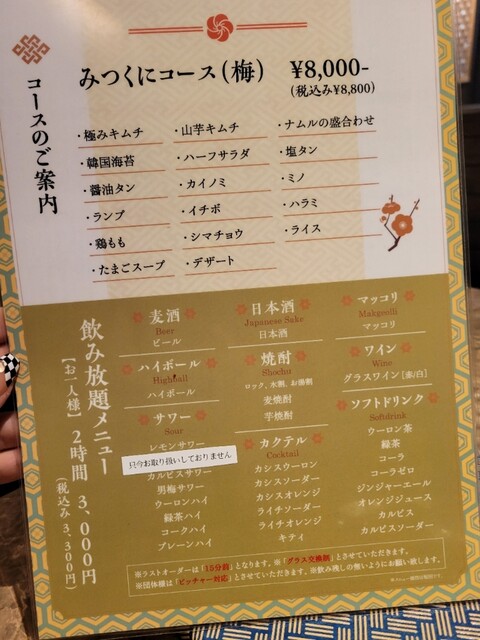 コースのご案内
みつくにコース(梅) ¥8,000-
(税込み¥8,800)
・極みキムチ ・山芋キムチ ・ナムルの盛合わせ
・韓国海苔 ・ハーフサラダ ・塩タン
・醤油タン ・カイノミ ・ミノ
・ランプ ・イチボ ・ハラミ
・鶏もも ・シマチョウ ・ライス
・たまごスープ ・デザート
飲み放題メニュー
【お一人様】2時間 3,000円
(税込み3,300円)
麦酒
Beer
ビール
ハイボール
Highball
ハイボール
サワー
Sour
レモンサワー
只今お取り扱いしておりません
カルピスサワー
男梅サワー
ウーロンハイ
緑茶ハイ
コークハイ
プレーンハイ
日本酒
Japanese Sake
日本酒
焼酎
Shochu
ロック、水割、お湯割
麦焼酎
芋焼酎
カクテル
Cocktail
カシスウーロン
カシスソーダー
カシスオレンジ
ライチソーダー
ライチオレンジ
キティ
マッコリ
Makgeolli
マッコリ
ワイン
Wine
グラスワイン[赤/白]
ソフトドリンク
Softdrink
ウーロン茶
緑茶
コーラ
コーラゼロ
ジンジャーエール
オレンジジュース
カルピス
カルピスソーダー
※ラストオーダーは「15分前」となります。※「グラス交換制」とさせていただきます。
※団体様は「ピッチャー対応」とさせていただきます。※飲み残しの無いようにお願い致します。